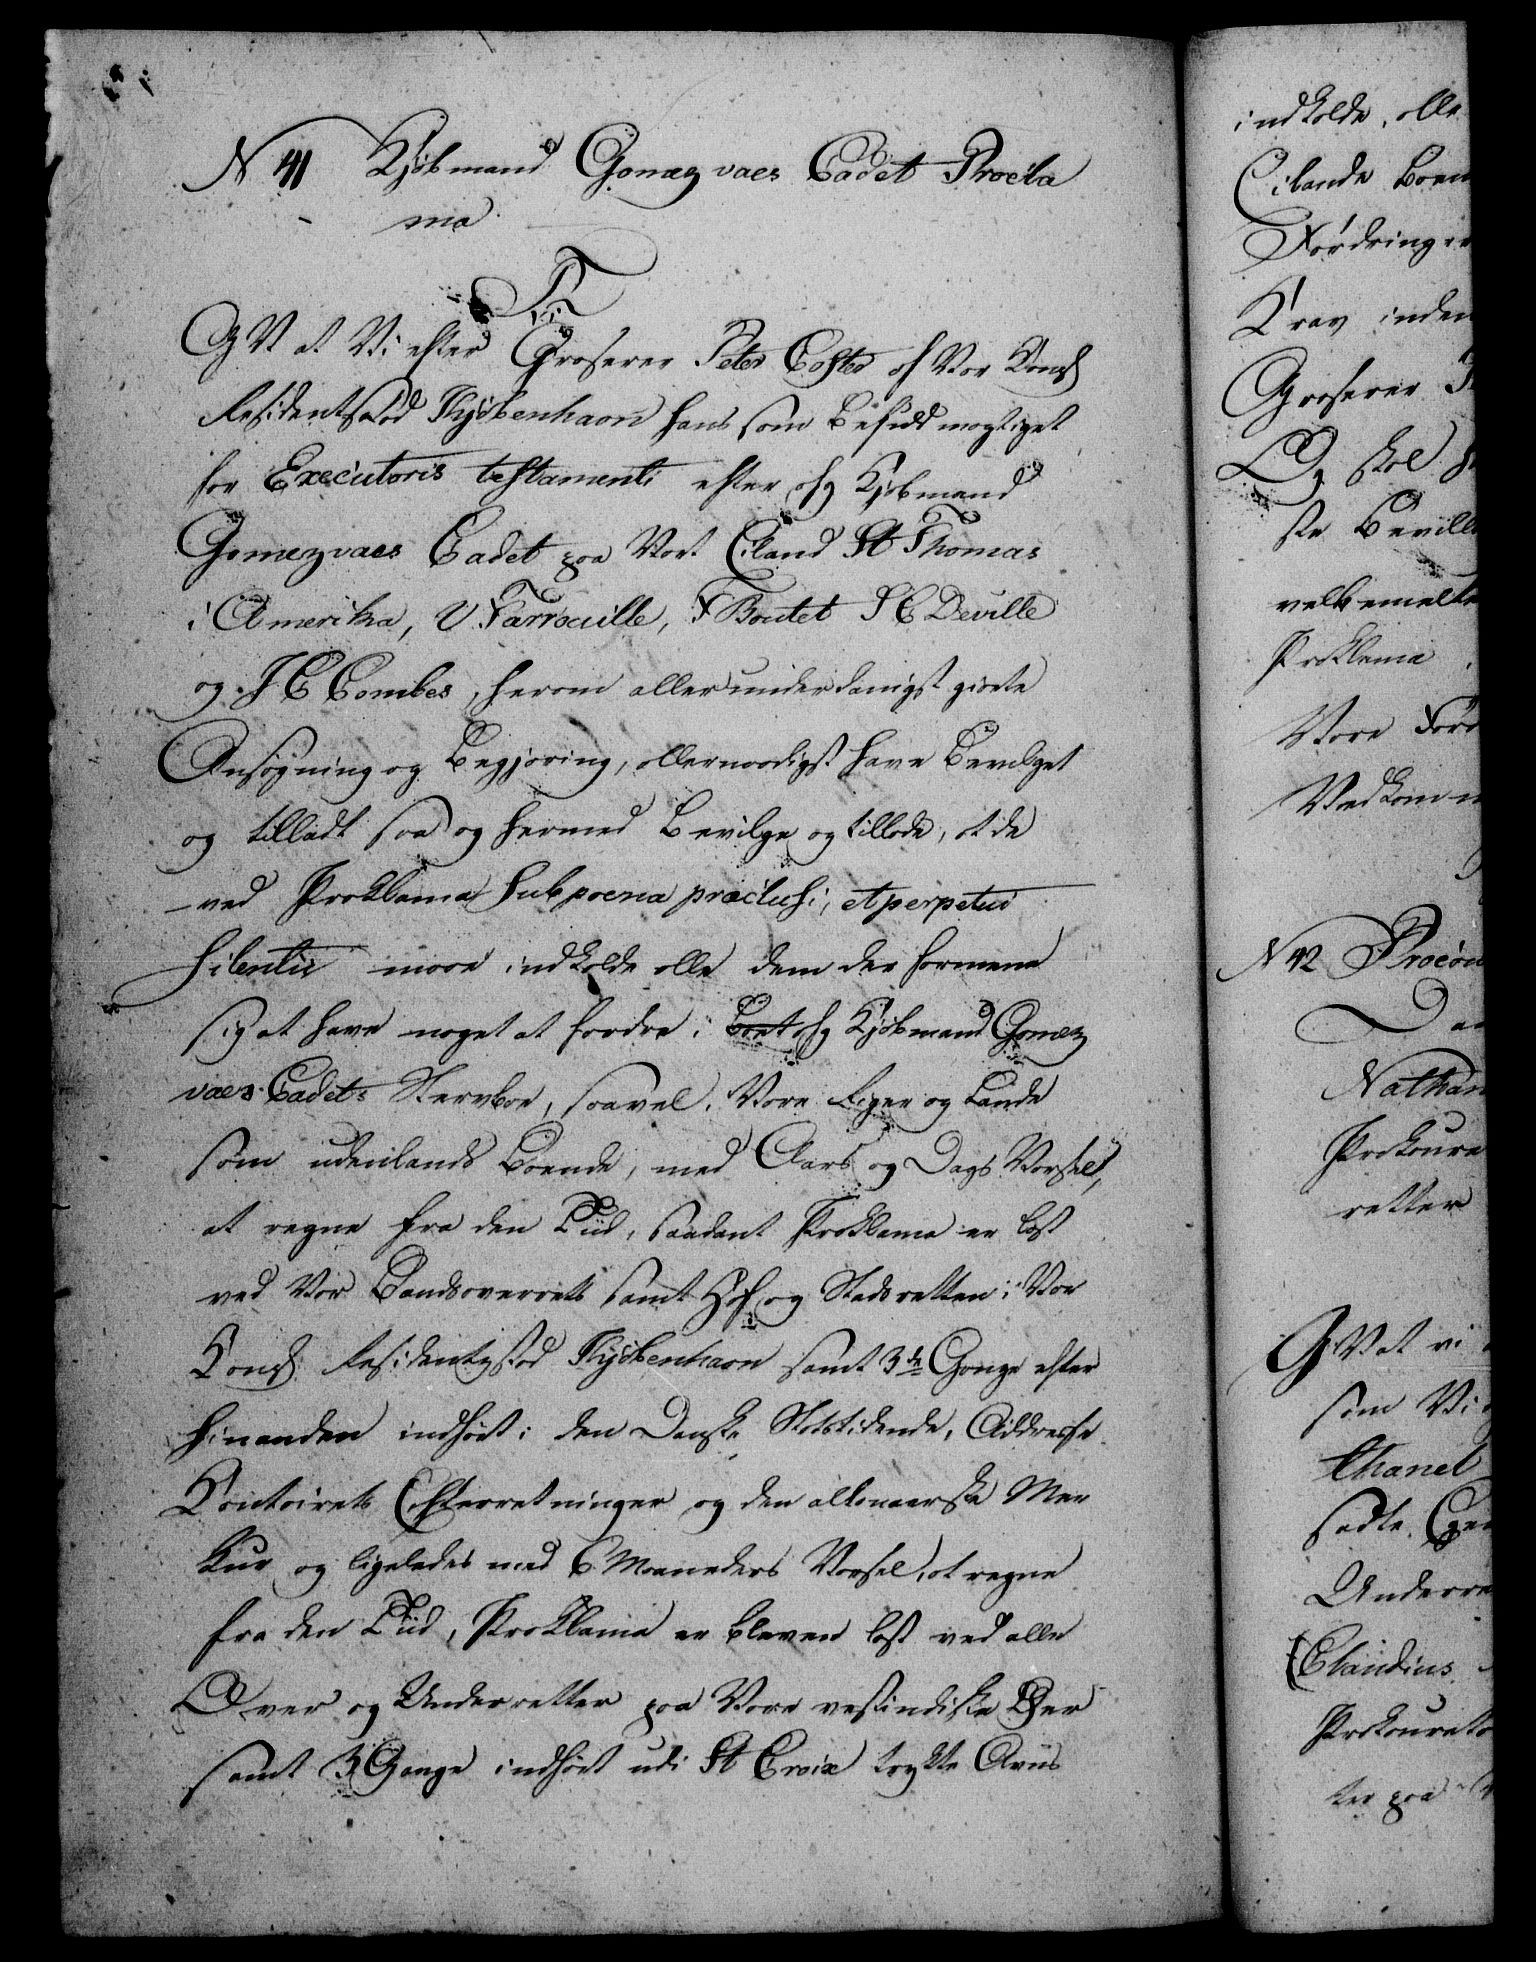 N 41 Kjøbmand Gomez vaes Cadet Procla
ma
F
GV at Vi efter Grosserer Peter Coster af Vor Kongl
Residentsstad Kjøbenhavn hans som Befuldmægtiget
for Executoris testamenti efter afg Kjøbmand
Gomezvaes Cadet paa Vort Eiland St Thomas
i Amerika, V Farrouille, F Boutet J C Deville
og J C Combes, herom allerunderdanigst giorte
Ansøgning og Begjæring, allernaadigst have Bevilget
og tilladt saa og hermed Bevilge og tillade, at de
ved Proklama sub poena præclusi, et perpetui
silentii maae indkalde alle dem der formene
sig at have noget at fordre i Boet afg Kjøbmand Gomez
vaes Cadets Stervboe, saavel i Vore Riger og Lande
som udenlands Boende, med Aars og Dags Varsel,
at regne fra den Tiid, saadant Proklama er læst
ved Vor Landsoverrets samt Hof og Stadsretten i Vor
Kongl Residentzstad Kjøbenhavn samt 3de Gange efter
hinanden indført i den Danske Statstidende, Addresse
Contoirets Efterretninger og den altonaerske Mer
kur og ligeledes med 6 Maaneders Varsel, at regne
fra den Tiid, Proklama er bleven læst ved alle
Over og Underretter paa Vore vestindiske Øer
samt 3 Gange indført udi St Croix trykte Aviis
indkalde, alle
Eilande Boen
Fordringer
Krav inden
Grosserer
Og skal
ste Bevill
velbemelte
Proklama
Vore Forr
Vedkomm
N 42 Procur
Nathan
Prokura
retter
GV at vi
som Vi
thanel
satte
Underre
Claudius
Prokurato
ter paa